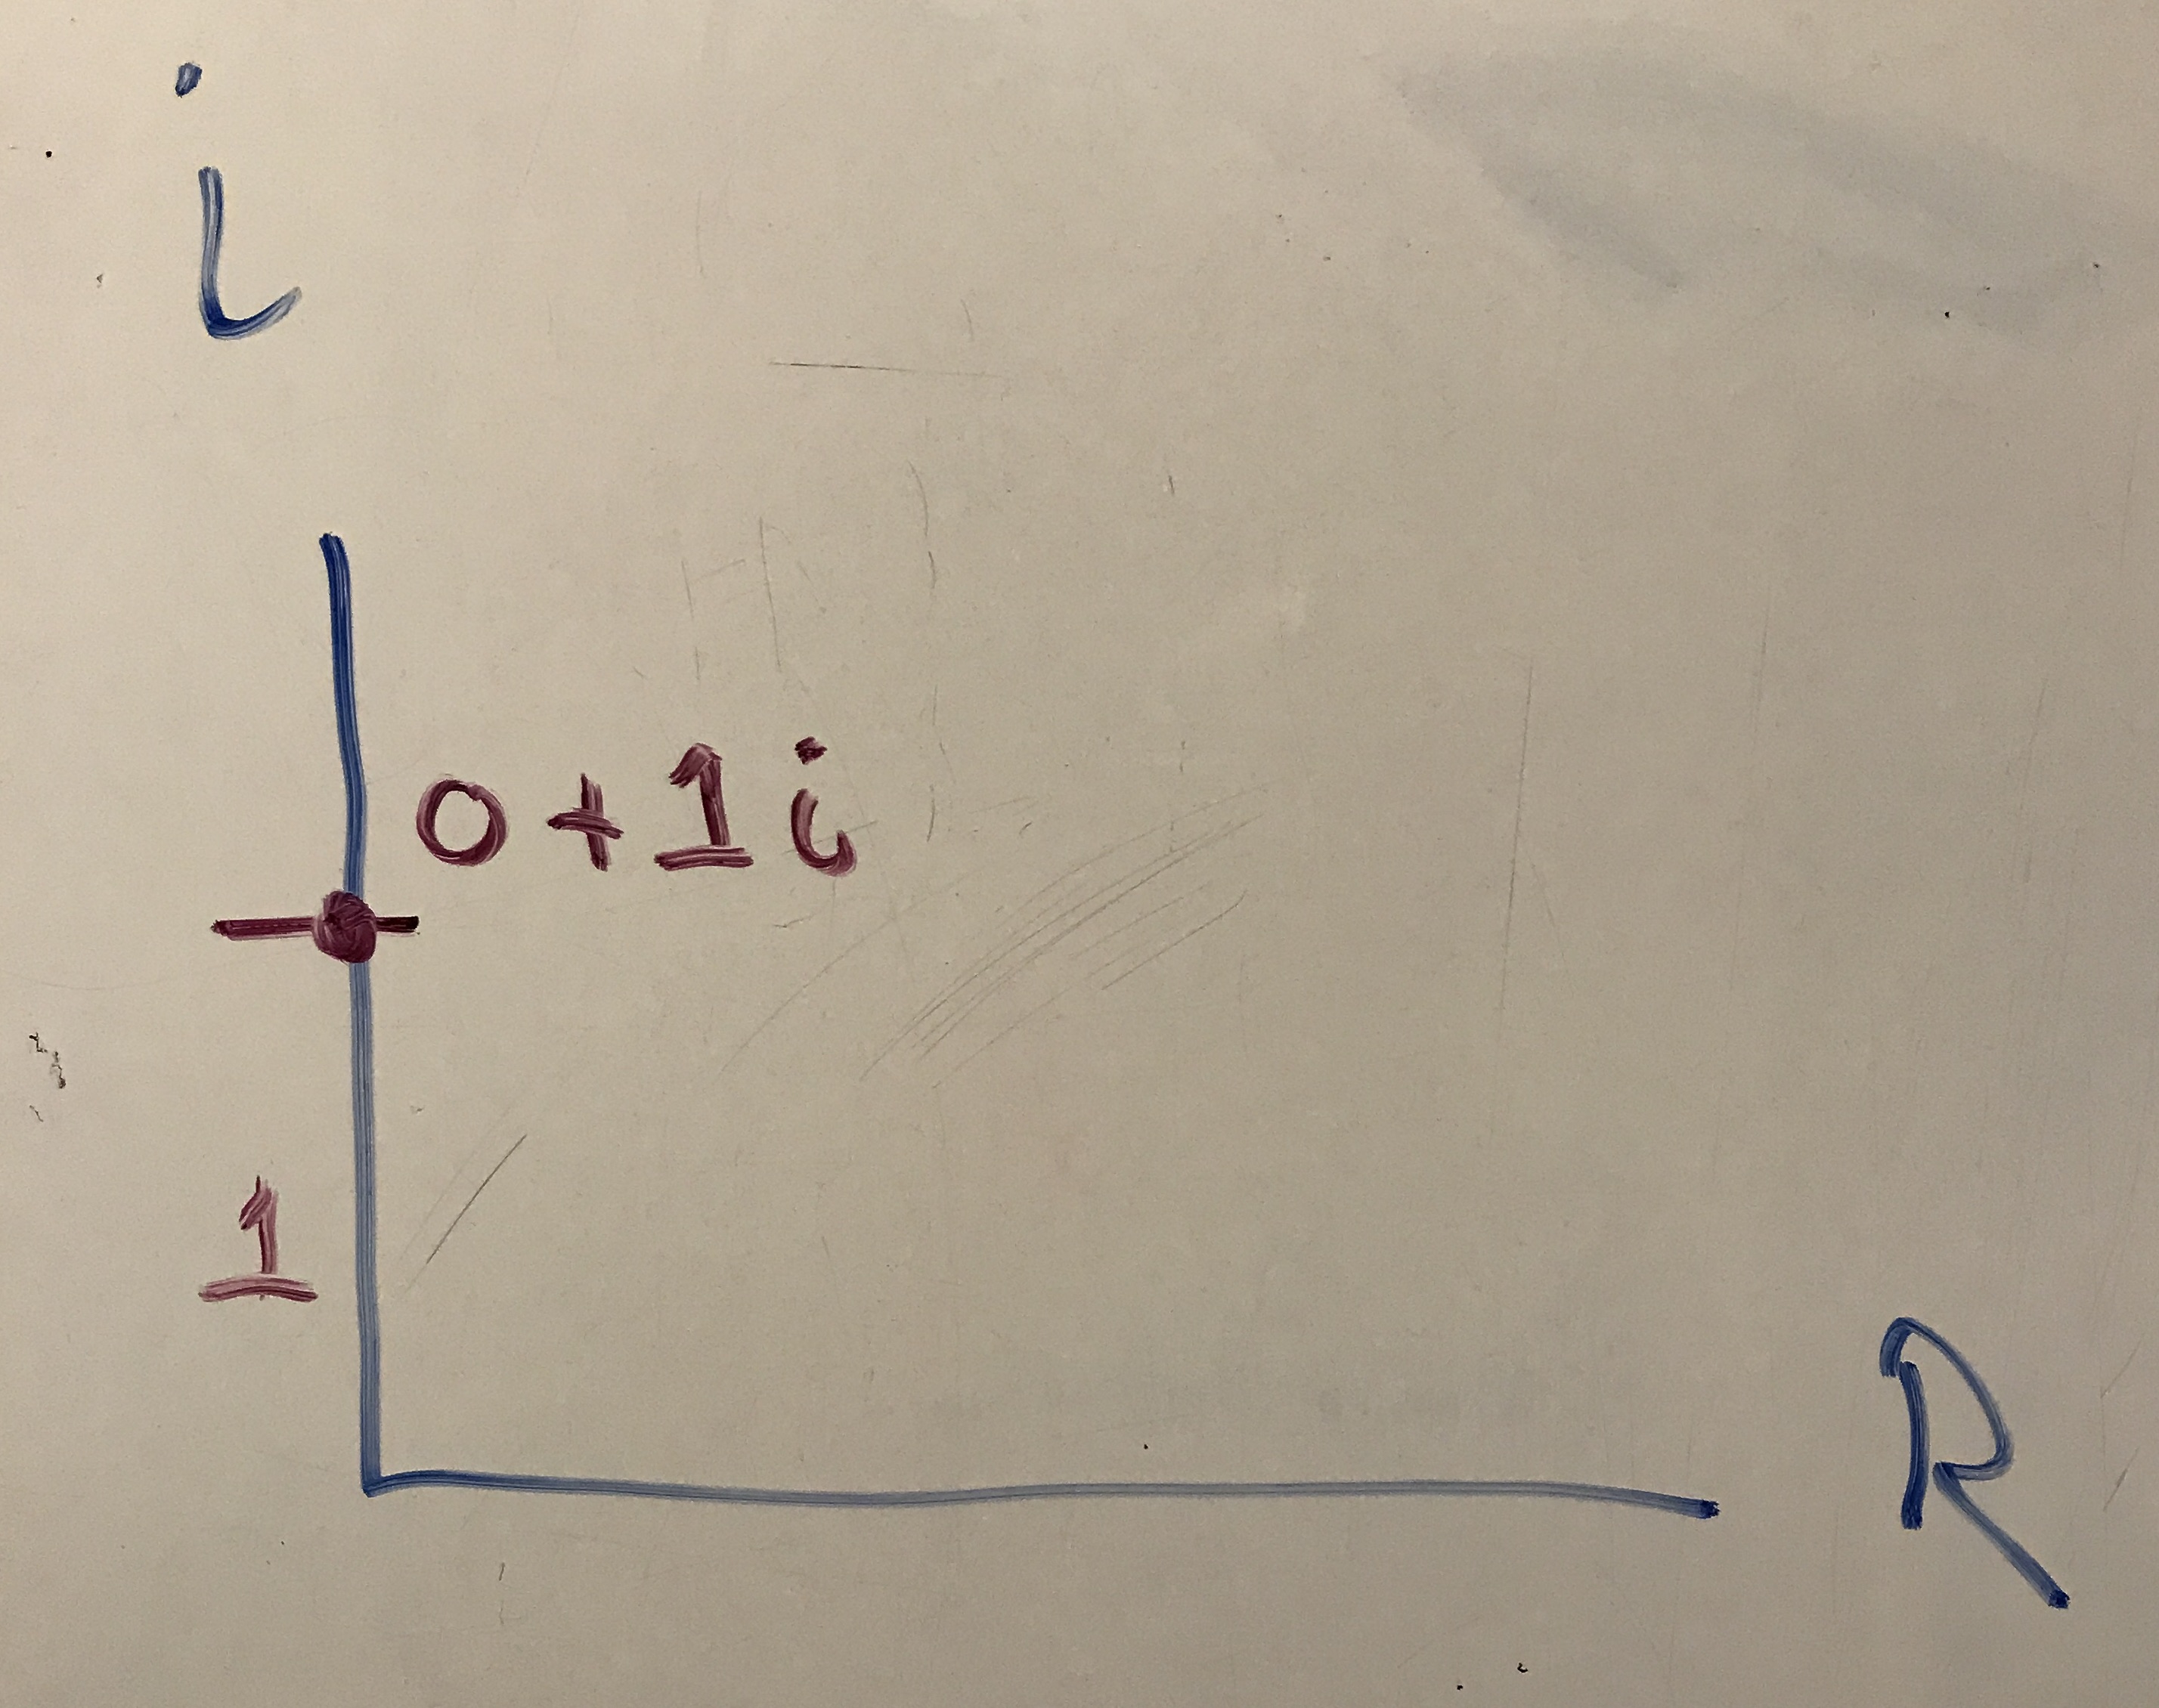 i
0+1i
1
R